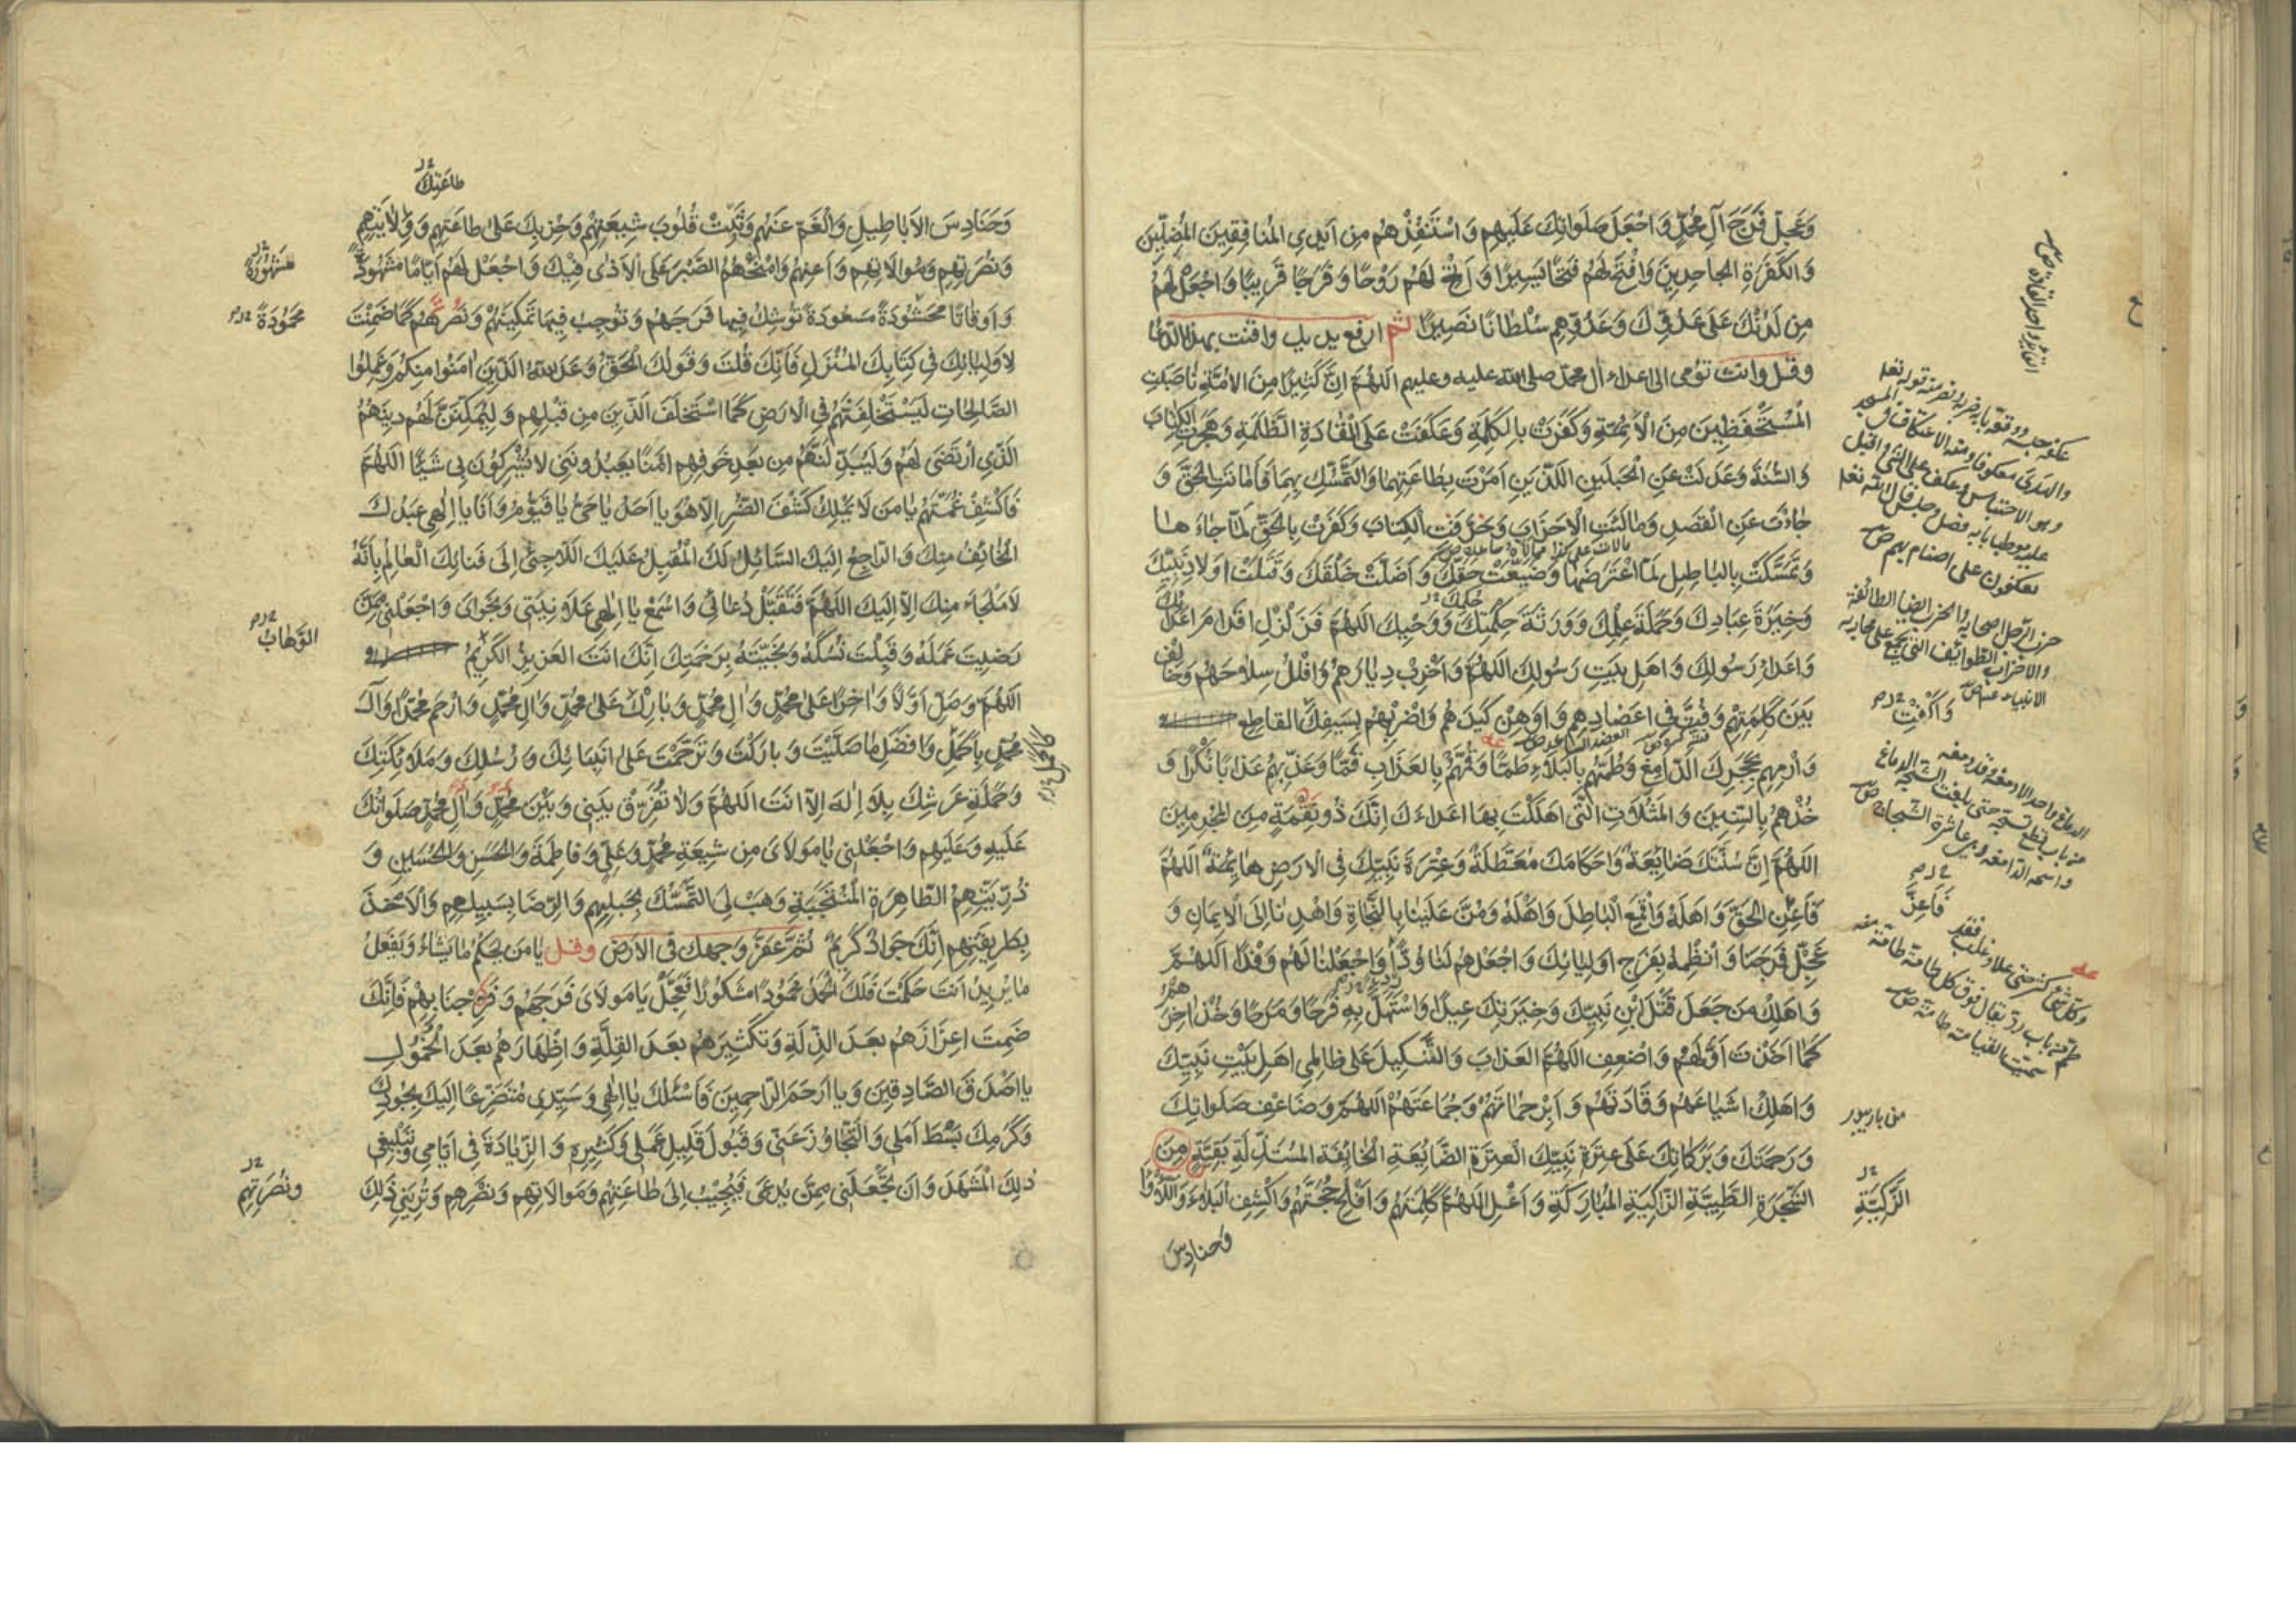 وَعَجِّلْ فَرَجَ آلِ مُحَمَّدٍ وَاجْعَلْ صَلَوَاتِكَ عَلَيْهِمْ وَاسْتَنْقِذْهُمْ مِنْ اَيْدِي الْمُنَافِقِينَ الْمُضِلِّينَ
وَالْكَفَرَةِ الْجَاحِدِينَ وَافْتَحْ لَهُمْ فَتْحًا يَسِيرًا وَاَتِحْ لَهُمْ رَوْحًا وَفَرَجًا قَرِيبًا وَاجْعَلْ لَهُمْ
مِنْ لَدُنْكَ عَلَى عَدُوِّكَ وَعَدُوِّهِمْ سُلْطَانًا نَصِيرًا ثم ارفع يديك واقنت بهذا الدعا
وقل وانت تؤمى الى اعداء آل محمد صلى الله عليه وعليهم اَللّٰهُمَّ اِنَّ كَثِيرًا مِنَ الْاُمَّةِ نَاصَبَتِ
الْمُسْتَحْفَظِينَ مِنَ الْاَئِمَّةِ وَكَفَرَتْ بِالْكَلِمَةِ وَعَكَفَتْ عَلَى الْقَادَةِ الظَّلَمَةِ وَهَجَرَتِ الْكِتَابَ
وَالسُّنَّةَ وَعَدَلَتْ عَنِ الْحَبْلَيْنِ اللَّذَيْنِ اَمَرْتَ بِطَاعَتِهِمَا وَالتَّمَسُّكِ بِهِمَا فَاَمَاتَتِ الْحَقَّ وَ
حَادَتْ عَنِ الْقَصْدِ وَمَالَئَتِ الْاَحْزَابَ وَحَرَّفَتِ الْكِتَابَ وَكَفَرَتْ بِالْحَقِّ لَمَّا جَاءَهَا
وَتَمَسَّكَتْ بِالْبَاطِلِ لَمَّا اعْتَرَضَهَا وَضَيَّعَتْ حَقَّكَ وَاَضَلَّتْ خَلْقَكَ وَقَتَلَتْ اَوْلَادَ نَبِيِّكَ
وَخِيَرَةَ عِبَادِكَ وَحَمَلَةَ عِلْمِكَ وَوَرَثَةَ حِكْمَتِكَ وَوَحْيِكَ اَللّٰهُمَّ فَزَلْزِلْ اَقْدَامَ اَعْدَائِكَ
وَاَعْدَاءِ رَسُولِكَ وَاَهْلِ بَيْتِ رَسُولِكَ اَللّٰهُمَّ وَاَخْرِبْ دِيَارَهُمْ وَافْلُلْ سِلَاحَهُمْ وَخَالِفْ
بَيْنَ كَلِمَتِهِمْ وَفُتَّ فِي اَعْضَادِهِمْ وَاَوْهِنْ كَيْدَهُمْ وَاضْرِبْهُمْ بِسَيْفِكَ الْقَاطِعِ
وَارْمِهِمْ بِحَجَرِكَ الدَّامِغِ وَطُمَّهُمْ بِالْبَلَاءِ طَمًّا وَقُمَّهُمْ بِالْعَذَابِ قَمًّا وَعَذِّبْهُمْ عَذَابًا نُكْرًا وَ
خُذْهُمْ بِالسِّنِينَ وَالْمَثُلَاتِ الَّتِي اَهْلَكْتَ بِهَا اَعْدَاءَكَ اِنَّكَ ذُو نِقْمَةٍ مِنَ الْمُجْرِمِينَ
اَللّٰهُمَّ اِنَّ سُنَّتَكَ ضَائِعَةٌ وَاَحْكَامَكَ مُعَطَّلَةٌ وَعِتْرَةَ نَبِيِّكَ فِي الْاَرْضِ هَائِمَةٌ اَللّٰهُمَّ
فَاَعِنِ الْحَقَّ وَاَهْلَهُ وَاقْمَعِ الْبَاطِلَ وَاَهْلَهُ وَمُنَّ عَلَيْنَا بِالنَّجَاةِ وَاهْدِنَا اِلَى الْاِيمَانِ وَ
عَجِّلْ فَرَجَنَا وَانْظِمْهُ بِفَرَجِ اَوْلِيَائِكَ وَاجْعَلْهُمْ لَنَا وُدًّا وَاجْعَلْنَا لَهُمْ وَفْدًا اَللّٰهُمَّ
وَاَهْلِكْ مَنْ جَعَلَ قَتْلَ ابْنِ نَبِيِّكَ وَخِيَرَتِكَ عِيدًا وَاسْتَهَلَّ بِهِ فَرَحًا وَمَرَحًا وَخُذْ آخِرَهُمْ
كَمَا اَخَذْتَ اَوَّلَهُمْ وَاَضْعِفِ اللّٰهُمَّ الْعَذَابَ وَالتَّنْكِيلَ عَلَى ظَالِمِي اَهْلِ بَيْتِ نَبِيِّكَ
وَاَهْلِكْ اَشْيَاعَهُمْ وَقَادَتَهُمْ وَاَبِرْ حُمَاتَهُمْ وَجَمَاعَتَهُمْ اَللّٰهُمَّ وَضَاعِفْ صَلَوَاتِكَ
وَرَحْمَتَكَ وَبَرَكَاتِكَ عَلَى عِتْرَةِ نَبِيِّكَ الْعِتْرَةِ الضَّائِعَةِ الْخَائِفَةِ الْمُسْتَذَلَّةِ بَقِيَّةٍ مِنَ
الشَّجَرَةِ الطَّيِّبَةِ الزَّاكِيَةِ الْمُبَارَكَةِ وَاَعْلِ اللّٰهُمَّ كَلِمَتَهُمْ وَاَفْلِجْ حُجَّتَهُمْ وَاكْشِفِ الْبَلَاءَ وَاللَّأْوَاءَ
وَحَنَادِسَ
وَاكْفِتْ
فَاَعِزَّ
الزَّكِيَّةِ
طَاعَتِكَ
وَحَنَادِسَ الْاَبَاطِيلِ وَالْغَمَّ عَنْهُمْ وَثَبِّتْ قُلُوبَ شِيعَتِهِمْ وَحِزْبِكَ عَلَى طَاعَتِهِمْ وَوِلَايَتِهِمْ
وَنُصْرَتِهِمْ وَمُوَالَاتِهِمْ وَاَعِنْهُمْ وَامْنَحْهُمُ الصَّبْرَ عَلَى الْاَذٰى فِيكَ وَاجْعَلْ لَهُمْ اَيَّامًا مَشْهُودَةً
وَاَوْقَاتًا مَحْشُودَةً مَسْعُودَةً تُوشِكُ فِيهَا فَرَجَهُمْ وَتُوجِبُ فِيهَا تَمْكِينَهُمْ وَنَصْرَهُمْ كَمَا ضَمِنْتَ
لِاَوْلِيَائِكَ فِي كِتَابِكَ الْمُنْزَلِ فَاِنَّكَ قُلْتَ وَقَوْلُكَ الْحَقُّ وَعَدَ اللّٰهُ الَّذِينَ اٰمَنُوا مِنْكُمْ وَعَمِلُوا
الصَّالِحَاتِ لَيَسْتَخْلِفَنَّهُمْ فِي الْاَرْضِ كَمَا اسْتَخْلَفَ الَّذِينَ مِنْ قَبْلِهِمْ وَلَيُمَكِّنَنَّ لَهُمْ دِينَهُمُ
الَّذِي ارْتَضَى لَهُمْ وَلَيُبَدِّلَنَّهُمْ مِنْ بَعْدِ خَوْفِهِمْ اَمْنًا يَعْبُدُونَنِي لَا يُشْرِكُونَ بِي شَيْئًا اَللّٰهُمَّ
فَاكْشِفْ غُمَّتَهُمْ يَا مَنْ لَا يَمْلِكُ كَشْفَ الضُّرِّ اِلَّا هُوَ يَا اَحَدُ يَا حَيُّ يَا قَيُّومُ وَاَنَا يَا اِلٰهِي عَبْدُكَ
الْخَائِفُ مِنْكَ وَالرَّاجِعُ اِلَيْكَ السَّائِلُ لَكَ الْمُقْبِلُ عَلَيْكَ اللَّاجِئُ اِلَى فَنَائِكَ الْعَالِمُ بِاَنَّهُ
لَا مَلْجَاءَ مِنْكَ اِلَّا اِلَيْكَ اَللّٰهُمَّ فَتَقَبَّلْ دُعَائِي وَاسْمَعْ يَا اِلٰهِي عَلَانِيَتِي وَنَجْوَايَ وَاجْعَلْنِي مِمَّنْ
رَضِيتَ عَمَلَهُ وَقَبِلْتَ نُسُكَهُ وَنَجَّيْتَهُ بِرَحْمَتِكَ اِنَّكَ اَنْتَ الْعَزِيزُ الْكَرِيمُ
اَللّٰهُمَّ وَصَلِّ اَوَّلًا وَاٰخِرًا عَلَى مُحَمَّدٍ وَاٰلِ مُحَمَّدٍ وَبَارِكْ عَلَى مُحَمَّدٍ وَاٰلِ مُحَمَّدٍ وَارْحَمْ مُحَمَّدًا وَاٰلَ
مُحَمَّدٍ بِاَكْمَلِ وَاَفْضَلِ مَا صَلَّيْتَ وَبَارَكْتَ وَتَرَحَّمْتَ عَلَى اَنْبِيَائِكَ وَرُسُلِكَ وَمَلَائِكَتِكَ
وَحَمَلَةِ عَرْشِكَ بِلَا اِلٰهَ اِلَّا اَنْتَ اَللّٰهُمَّ وَلَا تُفَرِّقْ بَيْنِي وَبَيْنَ مُحَمَّدٍ وَاٰلِ مُحَمَّدٍ صَلَوَاتُكَ
عَلَيْهِ وَعَلَيْهِمْ وَاجْعَلْنِي يَا مَوْلَايَ مِنْ شِيعَةِ مُحَمَّدٍ وَعَلِيٍّ وَفَاطِمَةَ وَالْحَسَنِ وَالْحُسَيْنِ وَ
ذُرِّيَّتِهِمُ الطَّاهِرَةِ الْمُنْتَجَبَةِ وَهَبْ لِيَ التَّمَسُّكَ بِحَبْلِهِمْ وَالرِّضَا بِسَبِيلِهِمْ وَالْاَخْذَ
بِطَرِيقَتِهِمْ اِنَّكَ جَوَادٌ كَرِيمٌ ثُمَّ عَفِّرْ وَجْهَكَ فِي الْاَرْضِ وقل يَا مَنْ يَحْكُمُ مَا يَشَاءُ وَيَفْعَلُ
مَا يُرِيدُ اَنْتَ حَكَمْتَ فَلَكَ الْحَمْدُ مَحْمُودًا مَشْكُورًا فَعَجِّلْ يَا مَوْلَايَ فَرَجَهُمْ وَفَرَجَنَا بِهِمْ فَاِنَّكَ
ضَمِنْتَ اِعْزَازَهُمْ بَعْدَ الذِّلَّةِ وَتَكْثِيرَهُمْ بَعْدَ الْقِلَّةِ وَاِظْهَارَهُمْ بَعْدَ الْخُمُولِ
يَا اَصْدَقَ الصَّادِقِينَ وَيَا اَرْحَمَ الرَّاحِمِينَ فَاَسْئَلُكَ يَا اِلٰهِي وَسَيِّدِي مُتَضَرِّعًا اِلَيْكَ بِجُودِكَ
وَكَرَمِكَ بَسْطَ اَمَلِي وَالتَّجَاوُزَ عَنِّي وَقَبُولَ قَلِيلِ عَمَلِي وَكَثِيرِهِ وَالزِّيَادَةَ فِي اَيَّامِي وَتَبْلِيغِي
ذٰلِكَ الْمَشْهَدَ وَاَنْ تَجْعَلَنِي مِمَّنْ يُدْعَى فَيُجِيبُ اِلَى طَاعَتِهِمْ وَمُوَالَاتِهِمْ وَنَصْرِهِمْ وَتُرِيَنِي ذٰلِكَ
مَحْمُودَةً
الْوَهَّابُ
وَنُصْرَتِهِمْ